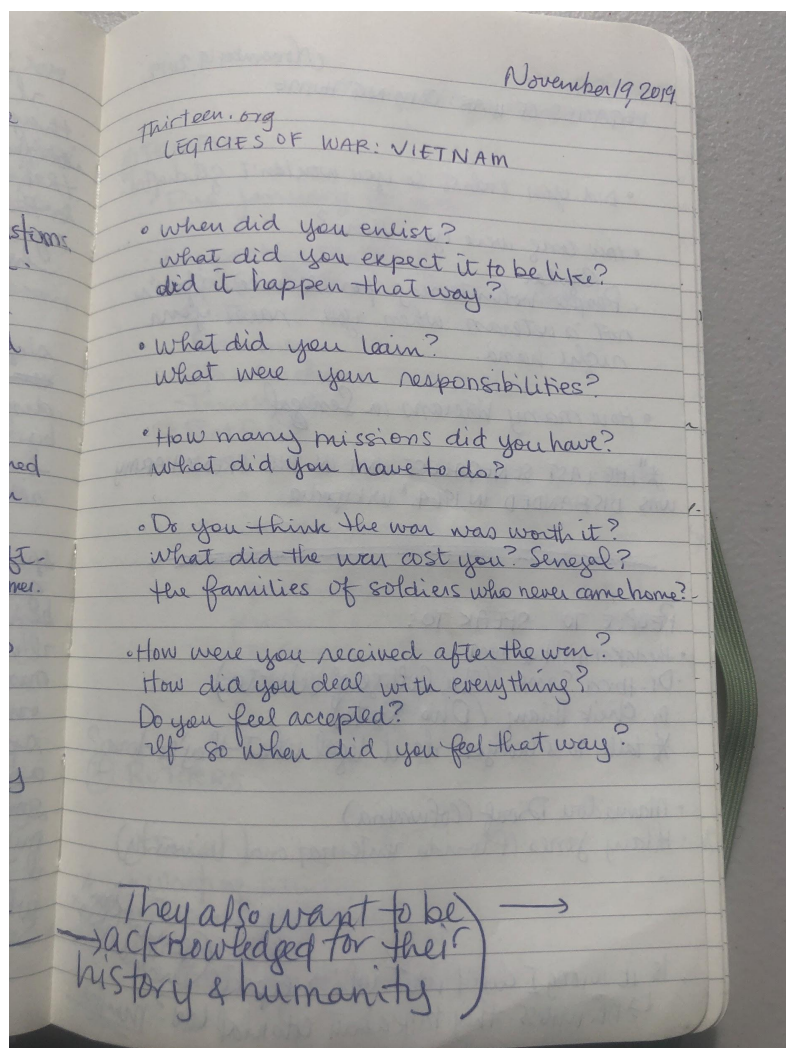 November 19, 2019
Thirteen.org
LEGACIES OF WAR: VIETNAM
• When did you enlist?
What did you expect it to be like?
did it happen that way?
• What did you learn?
What were your responsibilities?
• How many missions did you have?
What did you have to do?
• Do you think the war was worth it?
What did the war cost you? Senegal?
the families of soldiers who never came home?
• How were you received after the war?
How did you deal with everything?
Do you feel accepted?
If so when did you feel that way?
They also want to be
→ acknowledged for their
history & humanity